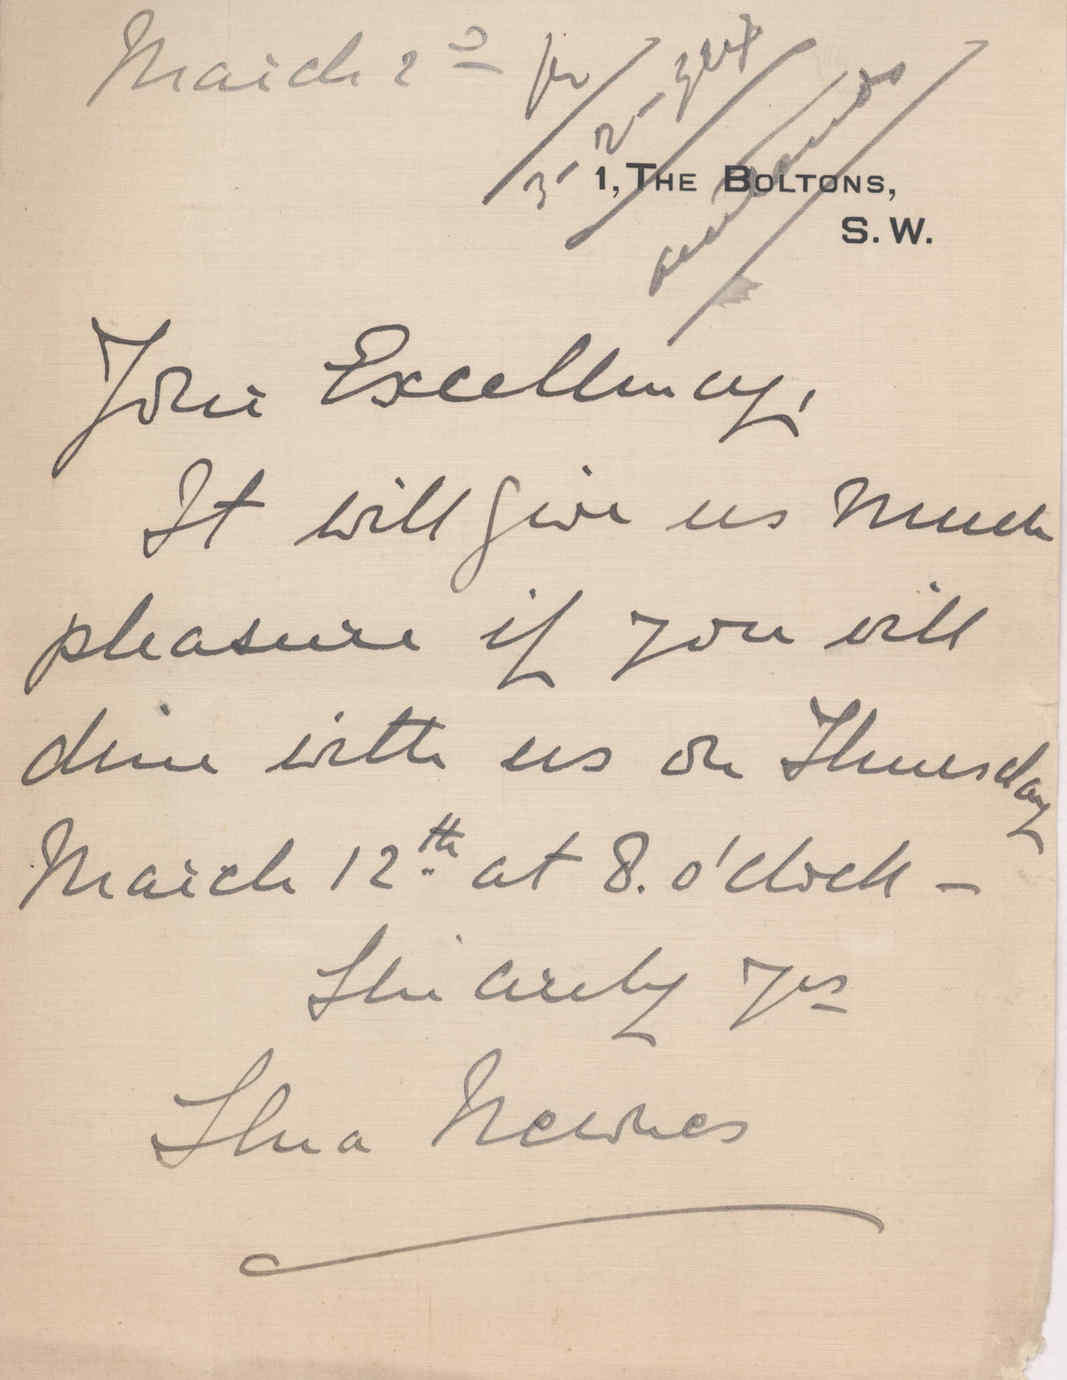 March 2nd
1, THE BOLTONS,
S. W.
Your Excellency,
It will give us much
pleasure if you will
dine with us on Thursday
March 12th. at 8. o'clock –
Sincerely yrs
Newnes